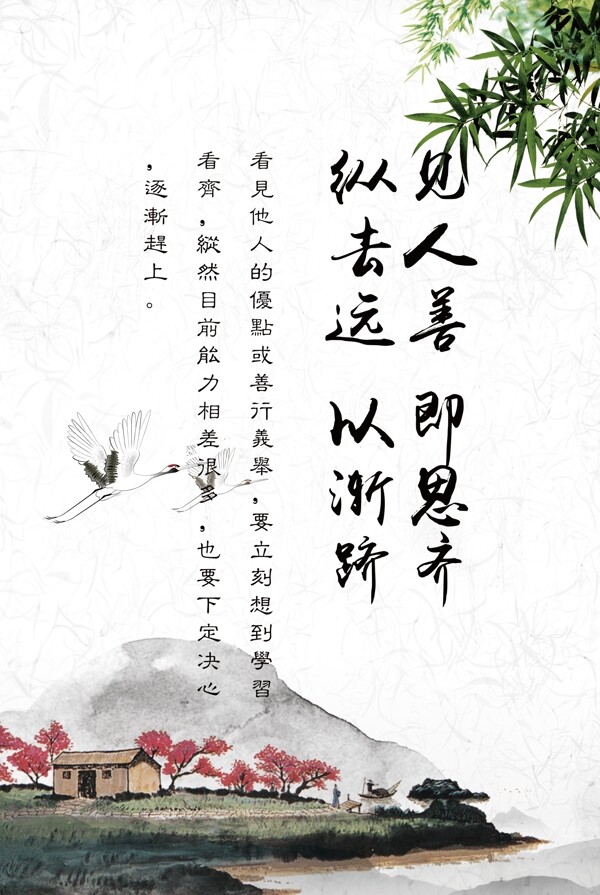 见人善 即思齐
纵去远 以渐跻
看見他人的優點或善行義舉,要立刻想到學習
看齊,縱然目前能力相差很多,也要下定决心
,逐漸趕上。